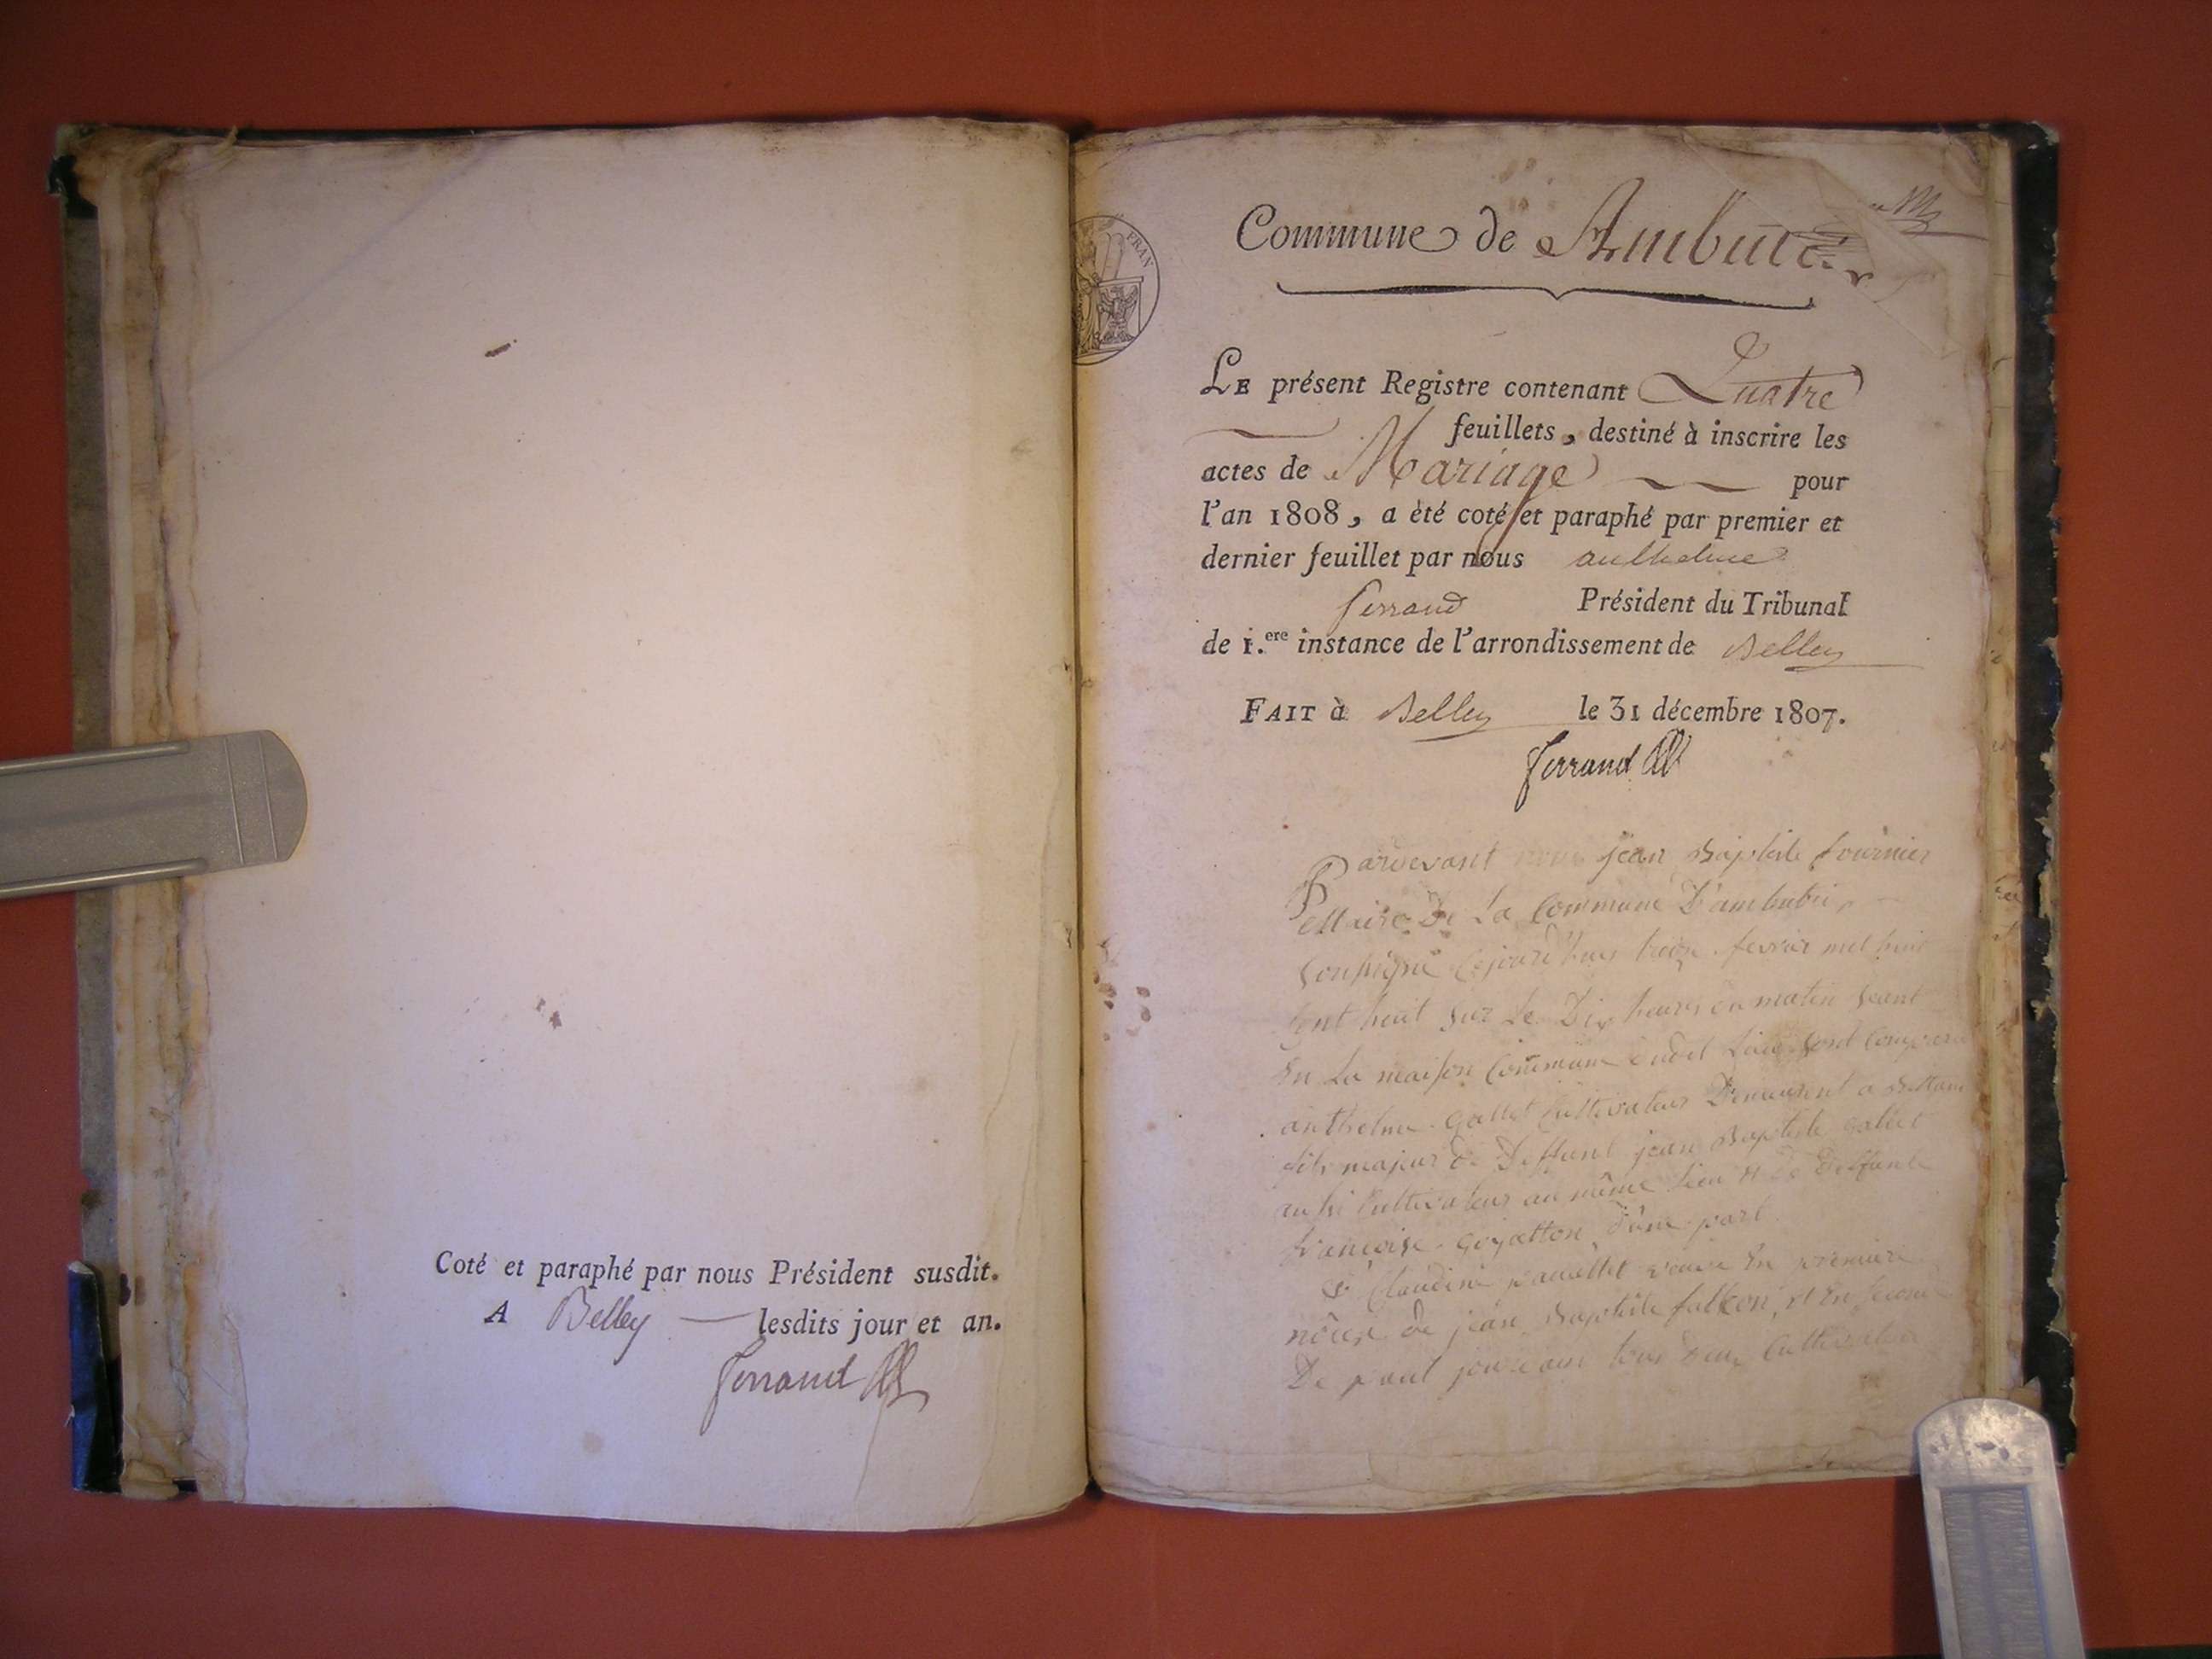 Coté et paraphé par nous Président susdit.
A Belley lesdits jour et an.
ferrand
FRAN
Commune de
LE présent Registre contenant Quatre
feuillets, destiné à inscrire les
actes de Mariage pour
l'an 1808, a èté coté et paraphé par premier et
dernier feuillet par nous anthelme
ferrand Président du Tribunal
de 1.ere instance de l'arrondissement de Belley
FAIT à Belley le 31 décembre 1807.
ferrand
Pardevant nous jean Baptiste fournier
De La Commune D'ambutrix
Soussigné Cejourd'huy treize fevrier mil huit
Cent huit sur Le Dix heures du matin Seant
En La maison Commune dudit Lieu Sont Comparu
anthelme gallet Cultivateur Demeurent a Bettant
fils majeur de Deffunt jean Baptiste gallet
aussi Cultivateur au même Lieu et de Deffunte
françoise goyatton D'une part
Et Claudine veuve En premiere
nôces de jean Baptiste falcon, et En second
De paul tous deux Cultivateur